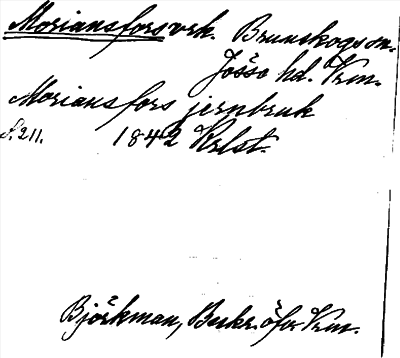 Moriansforsvrk. Brunskogs sn.
Jösse hd. Vrm.
Morians fors jernbruk
S. 211. 1842 Krlst.
Björkman, Beskr. öfver Vrm.